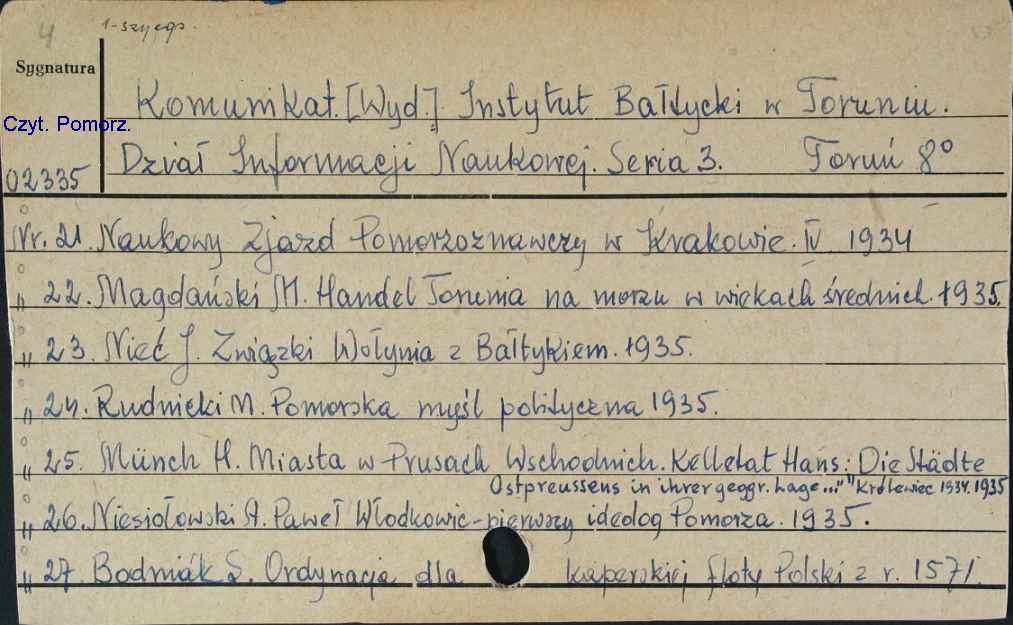 4
1-szy egz.
Sygnatura
Komunikat. [Wyd.] Instytut Bałtycki w Toruniu.
Czyt. Pomorz.
Dział Informacji Naukowej. Seria 3. Toruń 8°
02335
Nr. 21. Naukowy Zjazd Pomorzoznawczy w Krakowie. IV 1934
" 22. Magdański M. Handel Torunia na morzu w wiekach średnich. 1935.
" 23. Nieć J. Związki Wołynia z Bałtykiem. 1935.
" 24. Rudnicki M. Pomorska myśl polityczna 1935.
" 25. Münch H. Miasta w Prusach Wschodnich. Kelletat Hans: Die Städte
Ostpreussens in ihrer geogr. Lage..." Królewiec 1934. 1935
" 26. Niesiołowski A. Paweł Włodkowic - pierwszy ideolog Pomorza. 1935.
" 27. Bodniak S. Ordynacja dla kaperskiej floty Polski z r. 1571.